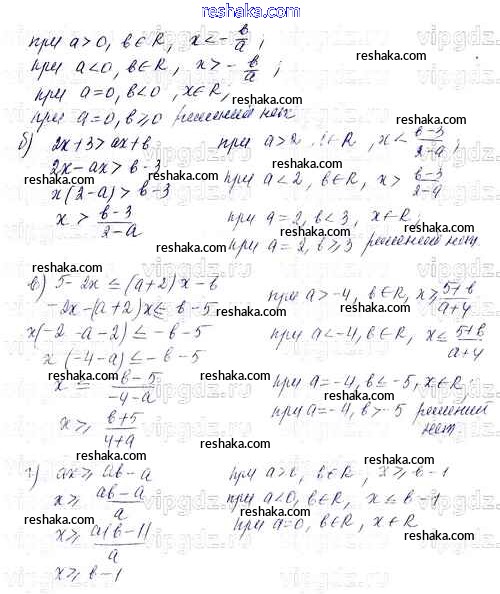 reshaka.com
при a>0, b∈R, x<-b/a;
при a<0, b∈R, x>-b/a;
при a=0, b<0, x∈R;
при a=0, b≥0 решений нет
б) 2x+3>ax+b
2x-ax>b-3
x(2-a)>b-3
x>(b-3)/(2-a)
при a>2, b∈R, x<(b-3)/(2-a);
при a<2, b∈R, x>(b-3)/(2-a)
при a=2, b<3, x∈R;
при a=2, b≥3 решений нет.
в) 5-2x≤(a+2)x-b
-2x-(a+2)x≤-b-5
x(-2-a-2)≤-b-5
x(-4-a)≤-b-5
x≤(-b-5)/(-4-a)
x≥(b+5)/(4+a)
при a>-4, b∈R, x≥(5+b)/(a+4)
при a<-4, b∈R, x≤(5+b)/(a+4)
при a=-4, b≤-5, x∈R;
при a=-4, b>-5 решений
нет.
г) ax≥ab-a
x≥(ab-a)/a
x≥a(b-1)/a
x≥b-1
при a>0, b∈R, x≥b-1
при a<0, b∈R, x≤b-1
при a=0, b∈R, x∈R
reshaka.com
vipgdz.com